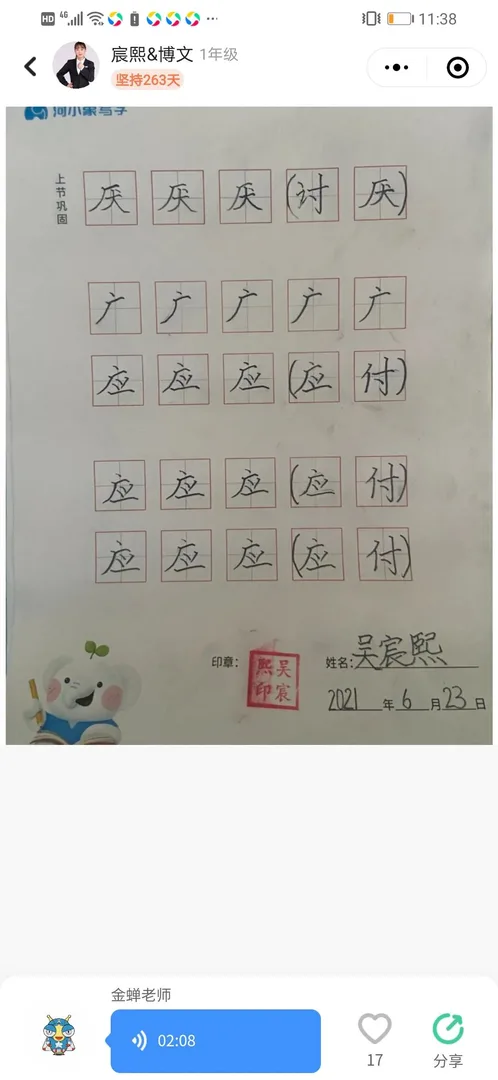 HD 4G 11:38
宸熙&博文 1年级
坚持263天
河小象写字
上节巩固 厌 厌 厌 (讨 厌)
广 广 广 广 广
应 应 应 (应 付)
应 应 应 (应 付)
应 应 应 (应 付)
印章: 熙吴印宸 姓名: 吴宸熙
2021 年 6 月 23 日
金蝉老师
02:08
17 分享